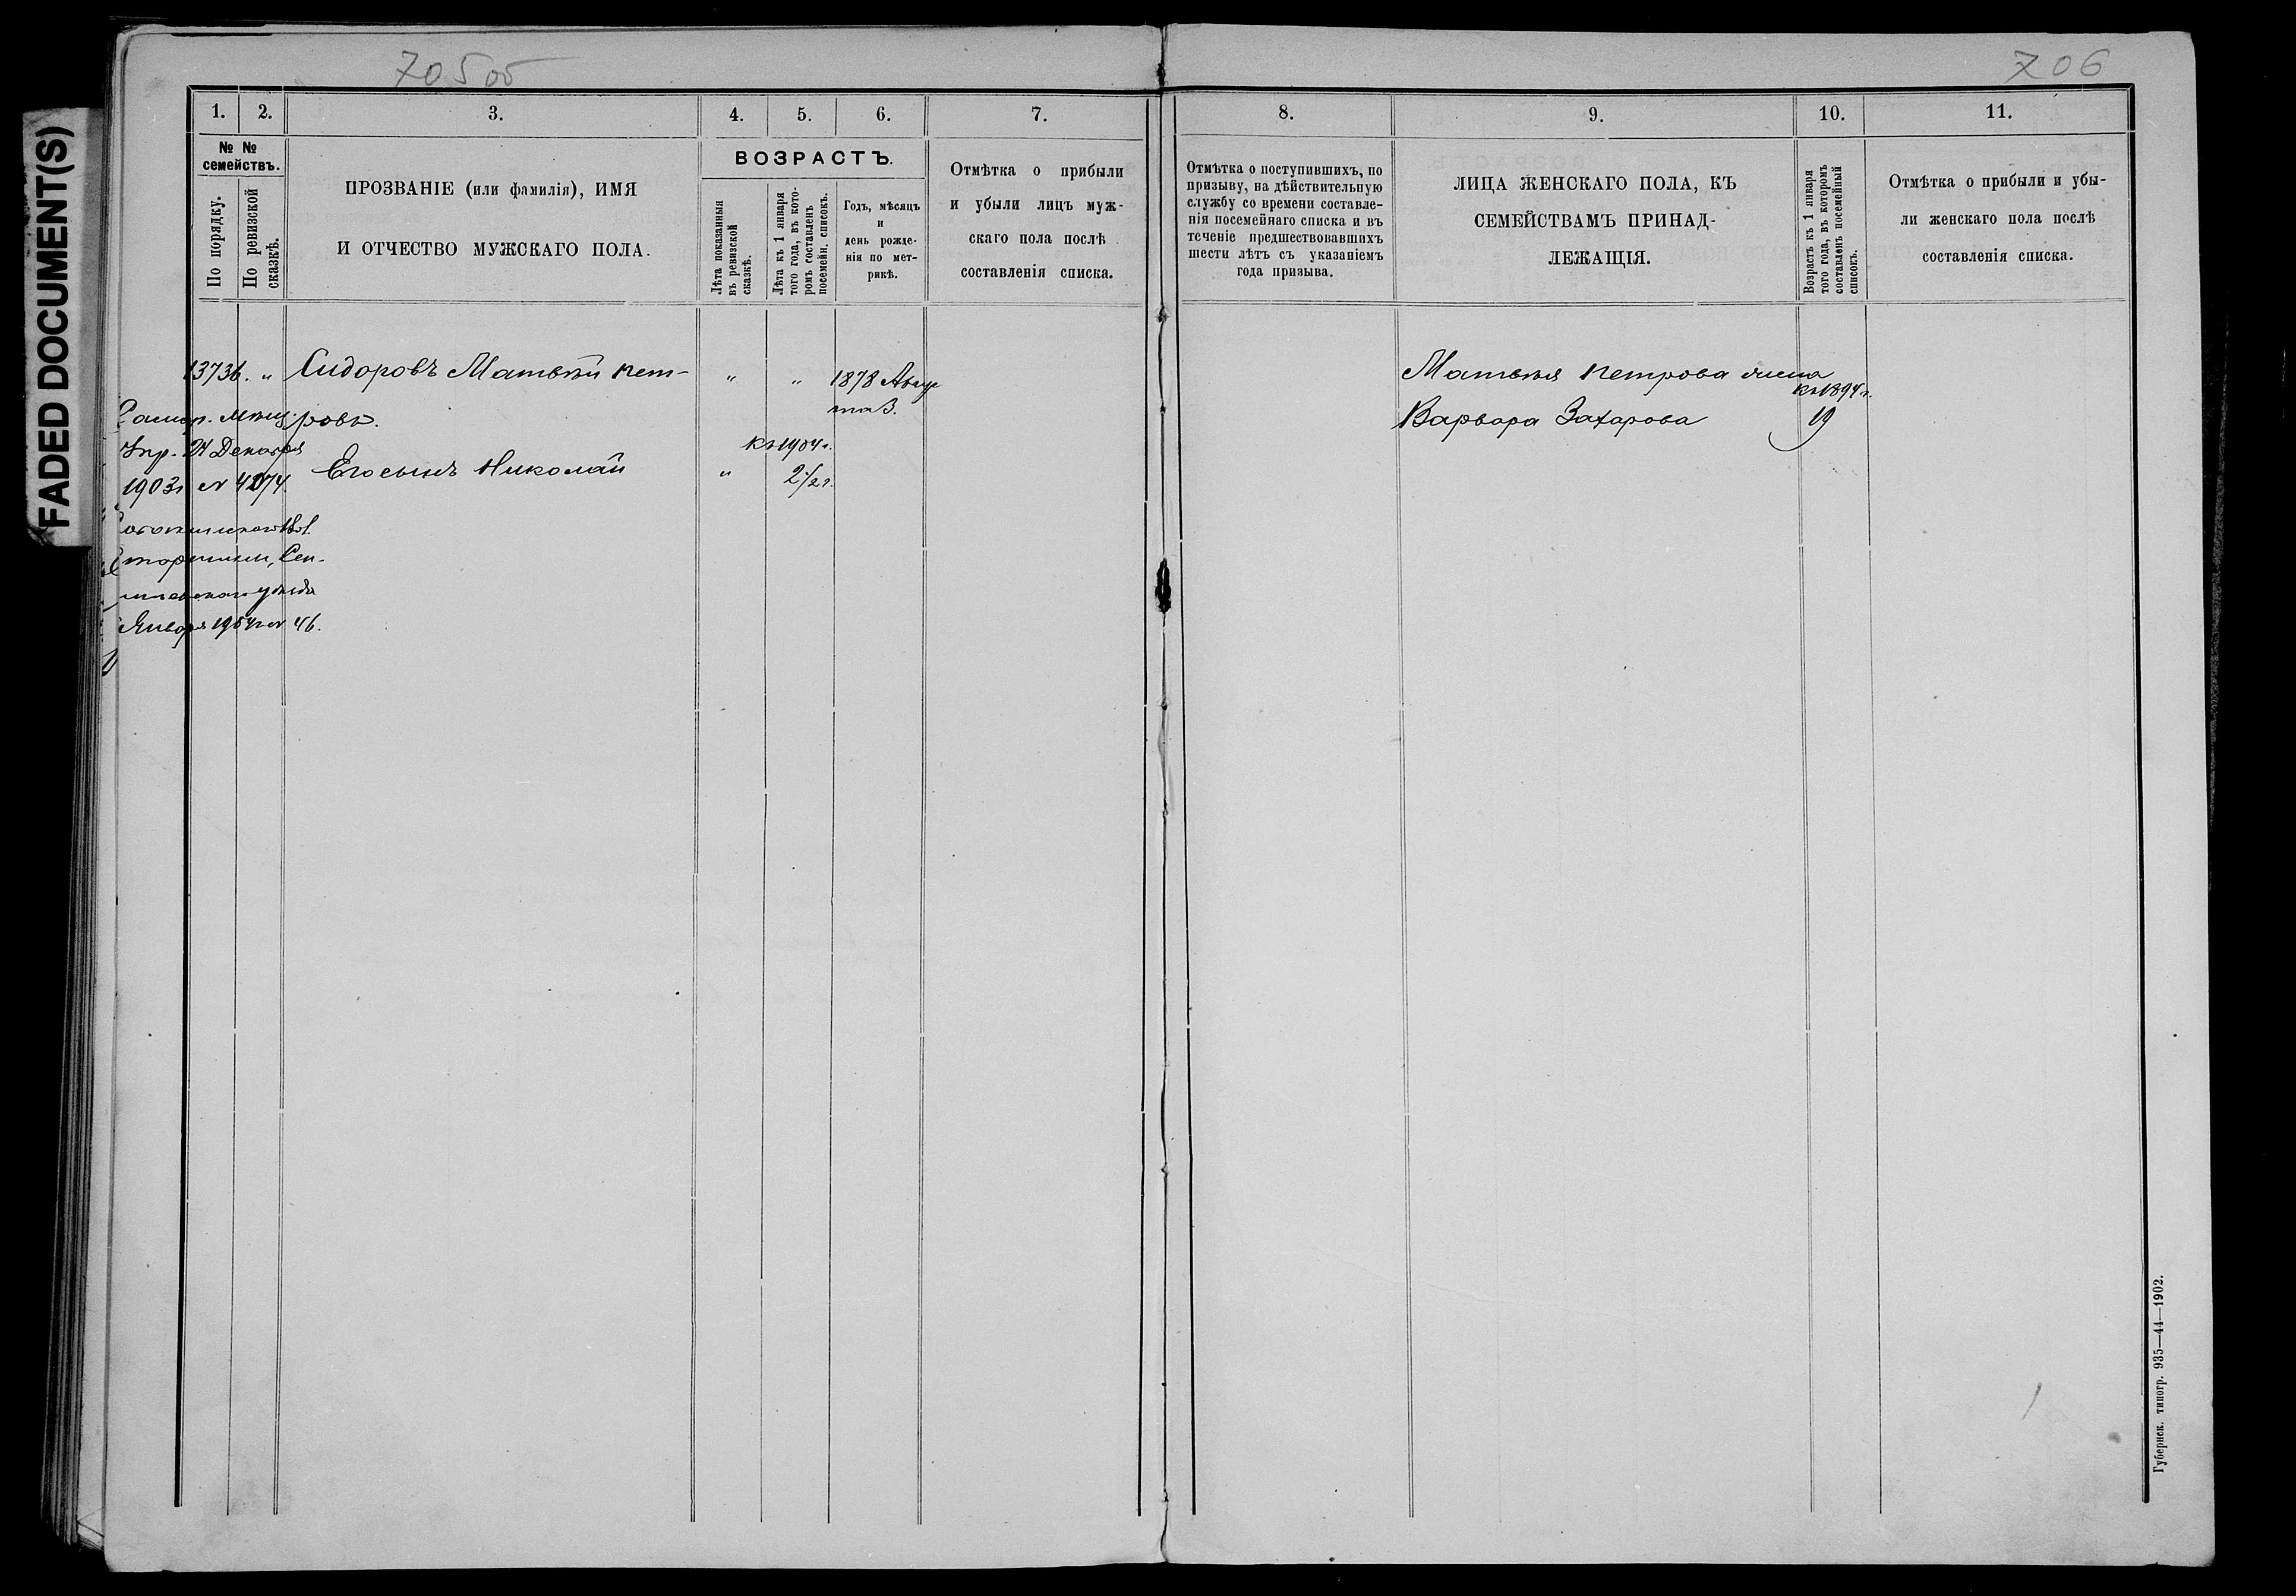 FADED DOCUMENT(S)
705об
706
1. 2. 3. 4. 5. 6. 7.
№ №
семействъ.
По порядку.
По ревизской
сказкѣ.
ПРОЗВАНІЕ (или фамилія), ИМЯ
И ОТЧЕСТВО МУЖСКАГО ПОЛА.
ВОЗРАСТЪ.
Лѣта показанныя
въ ревизской
сказкѣ.
Лѣта къ 1 января
того года, въ кото-
ромъ составленъ
посемейн. списокъ.
Годъ, мѣсяцъ
и
день рожде-
нія по мет-
рикѣ.
Отмѣтка о прибыли
и убыли лицъ муж-
скаго пола послѣ
составленія списка.
13736. „ Сидоровъ Матвѣй Пет- „ „ 1878 Авгу
ста 3.
ровъ.
Самар. мѣщ.
Упр. 24 Декабря
1903 г №
къ 1904 г.
Его сынъ Николай „ 2 1/2 г.
Января 1904 г № 46.
8. 9. 10. 11.
Отмѣтка о поступившихъ, по
призыву, на дѣйствительную
службу со времени составле-
нія посемейнаго списка и въ
теченіе предшествовавшихъ
шести лѣтъ съ указаніемъ
года призыва.
ЛИЦА ЖЕНСКАГО ПОЛА, КЪ
СЕМЕЙСТВАМЪ ПРИНАД-
ЛЕЖАЩІЯ.
Возрастъ къ 1 января
того года, въ которомъ
составленъ посемейный
списокъ.
Отмѣтка о прибыли и убы-
ли женскаго пола послѣ
составленія списка.
Матвѣя Петрова жена
къ 1894 г.
Варвара Захарова 19
Губернск. типогр. 935—44—1902.